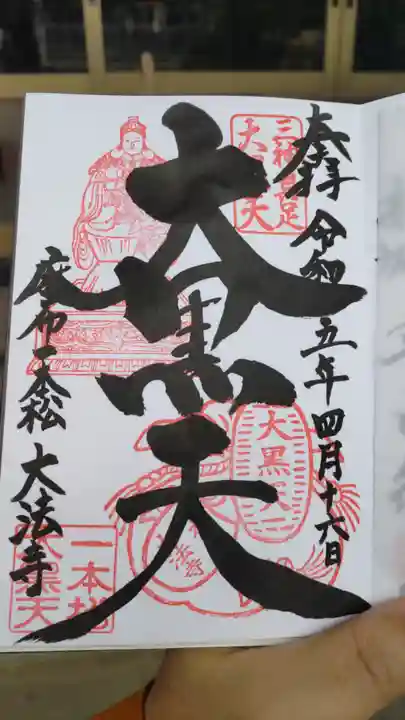 奉拝 令和五年四月十六日
三神具足
大黒天
大黒天
大黒天
大法寺
麻布一本松 大法寺
一本松
大黒天